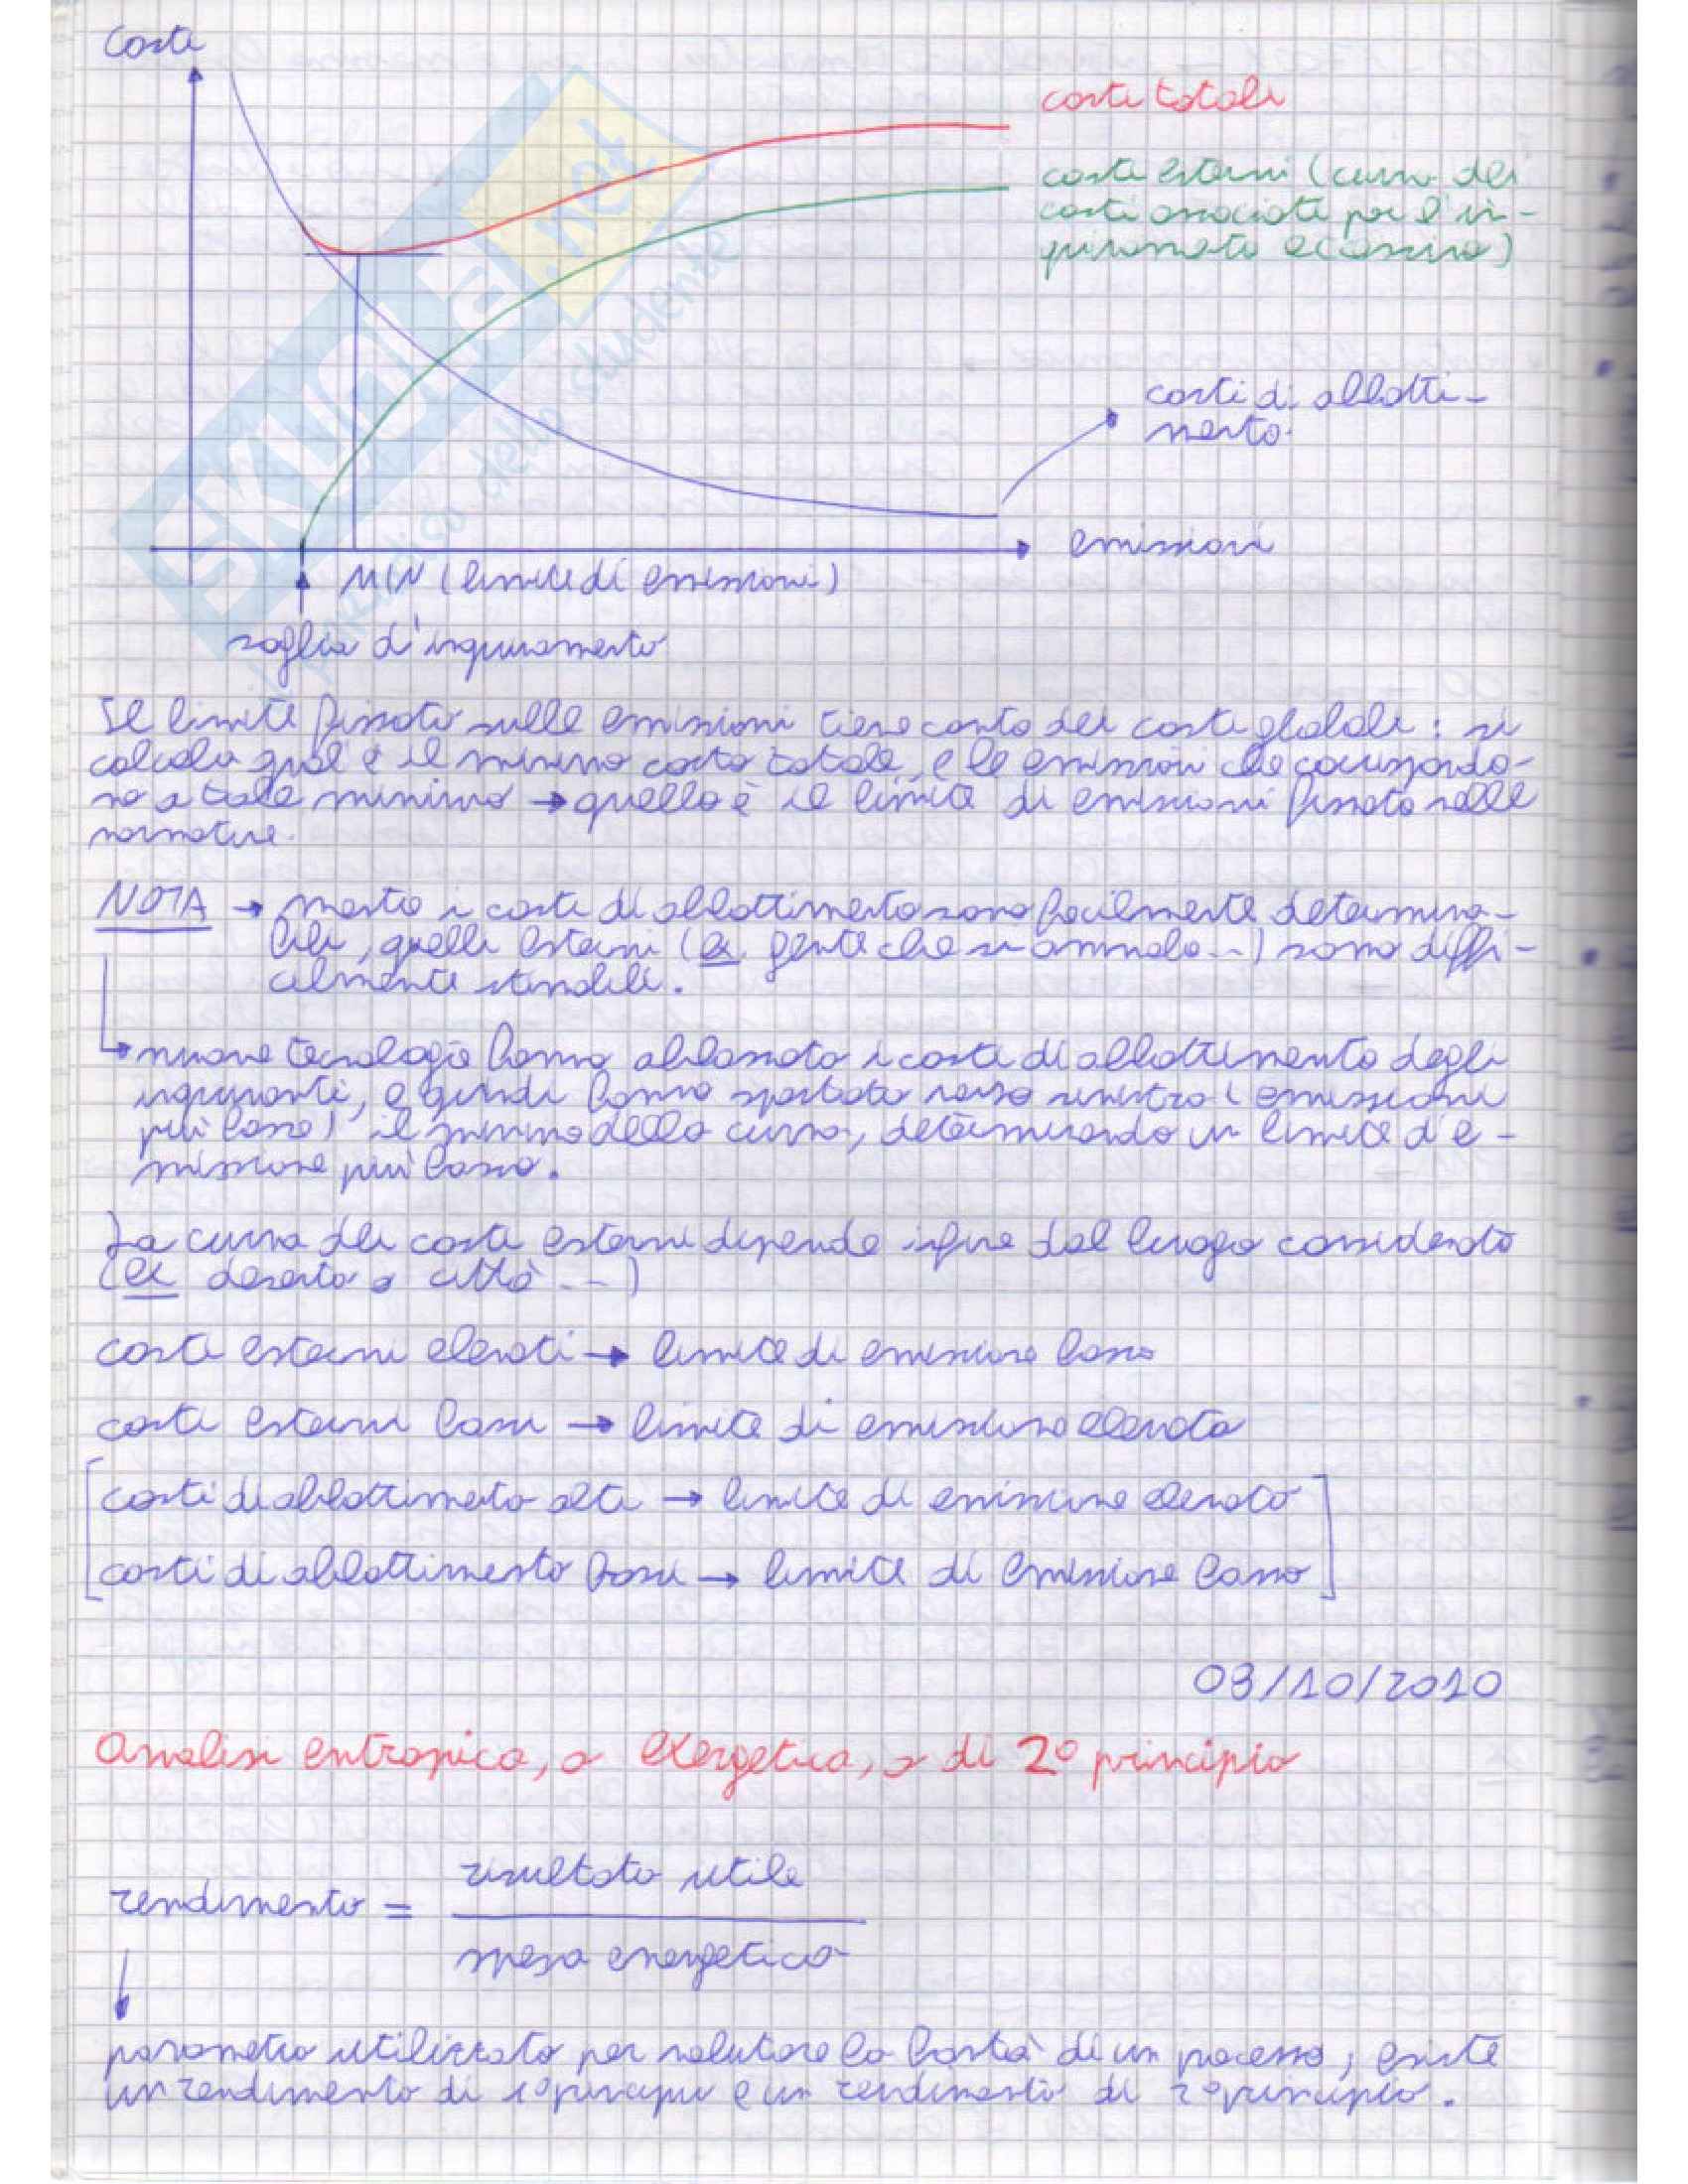 costi
costi totali
costi esterni (curva dei
costi associata per l'in-
quinamento eccessivo)
costi di abbatti-
mento.
emissioni
MIN (limite di emissioni)
soglia d'inquinamento
Il limite fissato sulle emissioni tiene conto dei costi globali: si
calcola qual è il minimo costo totale, e le emissioni che corrispondo-
no a tale minimo → quello è il limite di emissioni fissato nelle
normative.
NOTA → mentre i costi di abbattimento sono facilmente determina-
bili, quelli esterni (es. gente che si ammala...) sono diffi-
cilmente stimabili.
nuove tecnologie hanno abbassato i costi di abbattimento degli
inquinanti, e quindi hanno spostato verso sinistra (emissioni
più basse) il minimo della curva, determinando un limite d'e-
missione più basso.
La curva dei costi esterni dipende infine dal luogo considerato
(es deserto o città ...)
costi esterni elevati → limite di emissione basso
costi esterni bassi → limite di emissione elevato
[costi di abbattimento alti → limite di emissione elevato
costi di abbattimento bassi → limite di emissione basso]
/10/2010
Analisi entropica, o exergetica, o di 2° principio
rendimento = risultato utile
spesa energetica
parametro utilizzato per valutare la bontà di un processo; esiste
un rendimento di 1° principio e un rendimento di 2° principio.
SKUOLA.net
dello studente